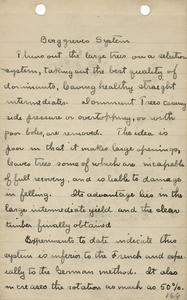 Borggreve System
Thins out the large trees on a selection
system, taking out the best quality of
dominants, leaving healthy straight
intermediates. Dominant trees causing
side pressure or overtopping, or with
poor boles, are removed. The idea is
poor in that it makes large openings,
leaves trees some of which are incapable
of full recovery, and is liable to damage
in felling. Its advantage lies in the
large intermediate yield and the clear
timber finally obtained
Experiments to date indicate this
system is inferior to the French and espe-
cially to the German method. It also
increases the rotation as much as 50%.